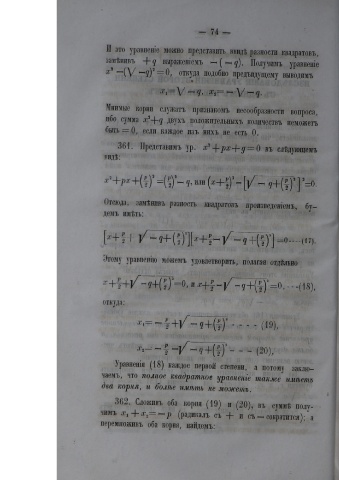 — 74 —
И это уравненіе можно представить ввидѣ разности квадратовъ,
замѣнивъ +q выраженіемъ —(—q). Получимъ уравненіе
x²—(√—q)²=0, откуда подобно предъидущему выводимъ
x₁=√—q, x₂=—√—q.
Мнимые корни служатъ признакомъ несообразности вопроса,
ибо сумма x²+q двухъ положительныхъ количествъ неможетъ
быть =0, если каждое изъ нихъ не есть 0.
361. Представимъ ур. x²+px+q=0 въ слѣдующемъ
видѣ:
x²+px+(p/2)²=(p/2)²—q, или (x+p/2)²—[√—q+(p/2)²]²=0
Отсюда, замѣнивъ разность квадратовъ произведеніемъ, бу-
демъ имѣть:
[x+p/2+√—q+(p/2)²][x+p/2—√—q+(p/2)²]=0····(17).
Этому уравненію можемъ удовлетворить, полагая отдѣльно
x+p/2+√—q+(p/2)²=0, и x+p/2—√—q+(p/2)²=0,···(18),
откуда:
x₁=—p/2+√—q+(p/2)² ···· (19),
x₂=—p/2—√—q+(p/2)² ···· (20),
Уравненія (18) каждое первой степени, а потому заклю-
чаемъ, что полное квадратное уравненіе также имѣетъ
два корня, и болѣе имѣть не можетъ.
362. Сложивъ оба корня (19) и (20), въ суммѣ полу-
чимъ x₁+x₂=—p (радикалъ съ + и съ — сократится); а
перемноживъ оба корня, найдемъ: